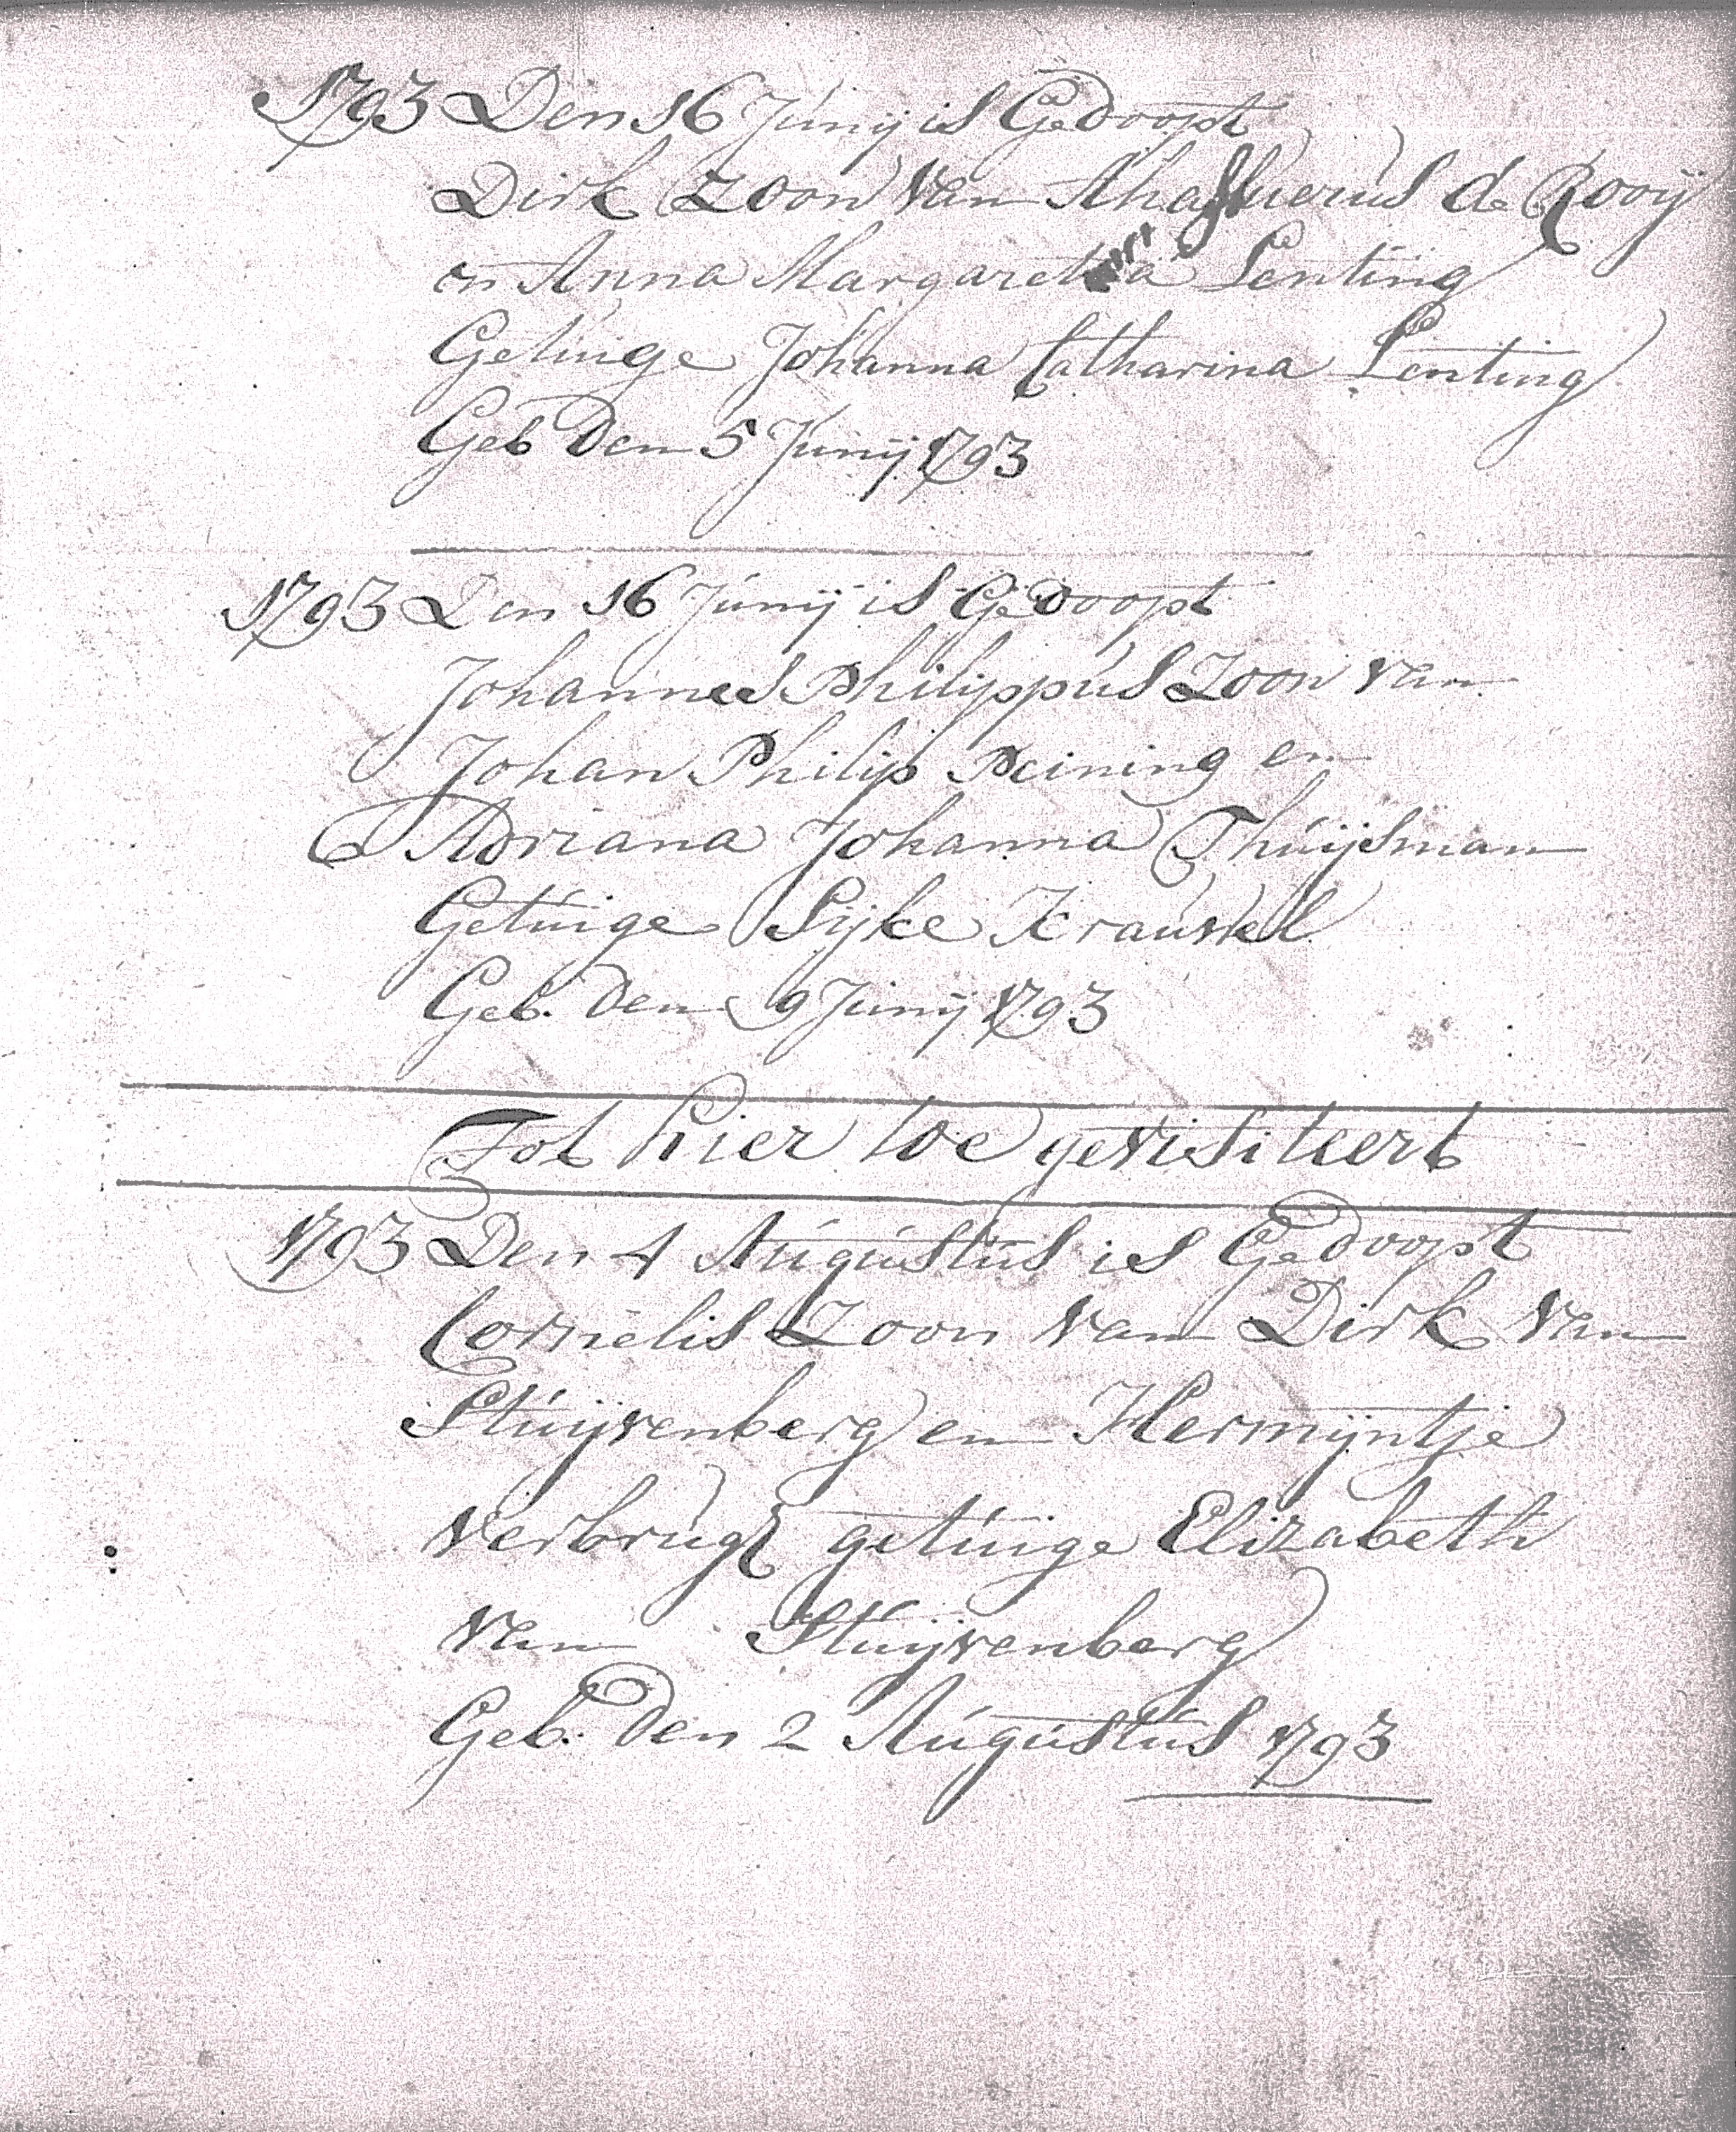 1793 Den 16 Junij is Gedoopt
Dirk Zoon van Ahassuerus de Rooij
en Anna Margaretha Lenting
Getuige Johanna Catharina Lenting
Geb Den 5 Junij 1793
1793 Den 16 Junij is Gedoopt
Johannes Philippus Zoon van
Johan Philip Reining en
Adriana Johanna Thuijsman
Getuige Sijke
Geb. Den 9 Junij 1793
Tot hier toe gevisiteert
1793 Den 4 Augustus is Gedoopt
Cornelis Zoon van Dirk van
Stuijvenberg en Hermijntje
Verbrugt getuige Elizabeth
van Stuijvenberg
Geb. Den 2 Augustus 1793